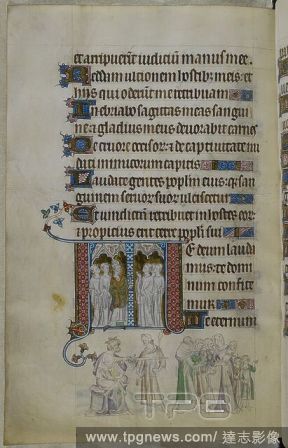 et arripuerit iudicium manus mee.
Reddam ultionem hostib; meis: et
hiis qui oderunt me retribuam
Inebriabo sagitas meas sangui
ne: a gladius meus devorabit carnes
De cruore occisor: a de captivitate nu
dati inimicorum capitis
Laudate gentes popl'm eius: q: san
guinem servor suor ulciscetur
Et vindictam retribuet in hostes eor:
a propicius erit terre popl'i sui
Te deum lauda
mus: te domi
num confite
mur
Te eternum
TPG
www.tpgnews.com / 達志影像